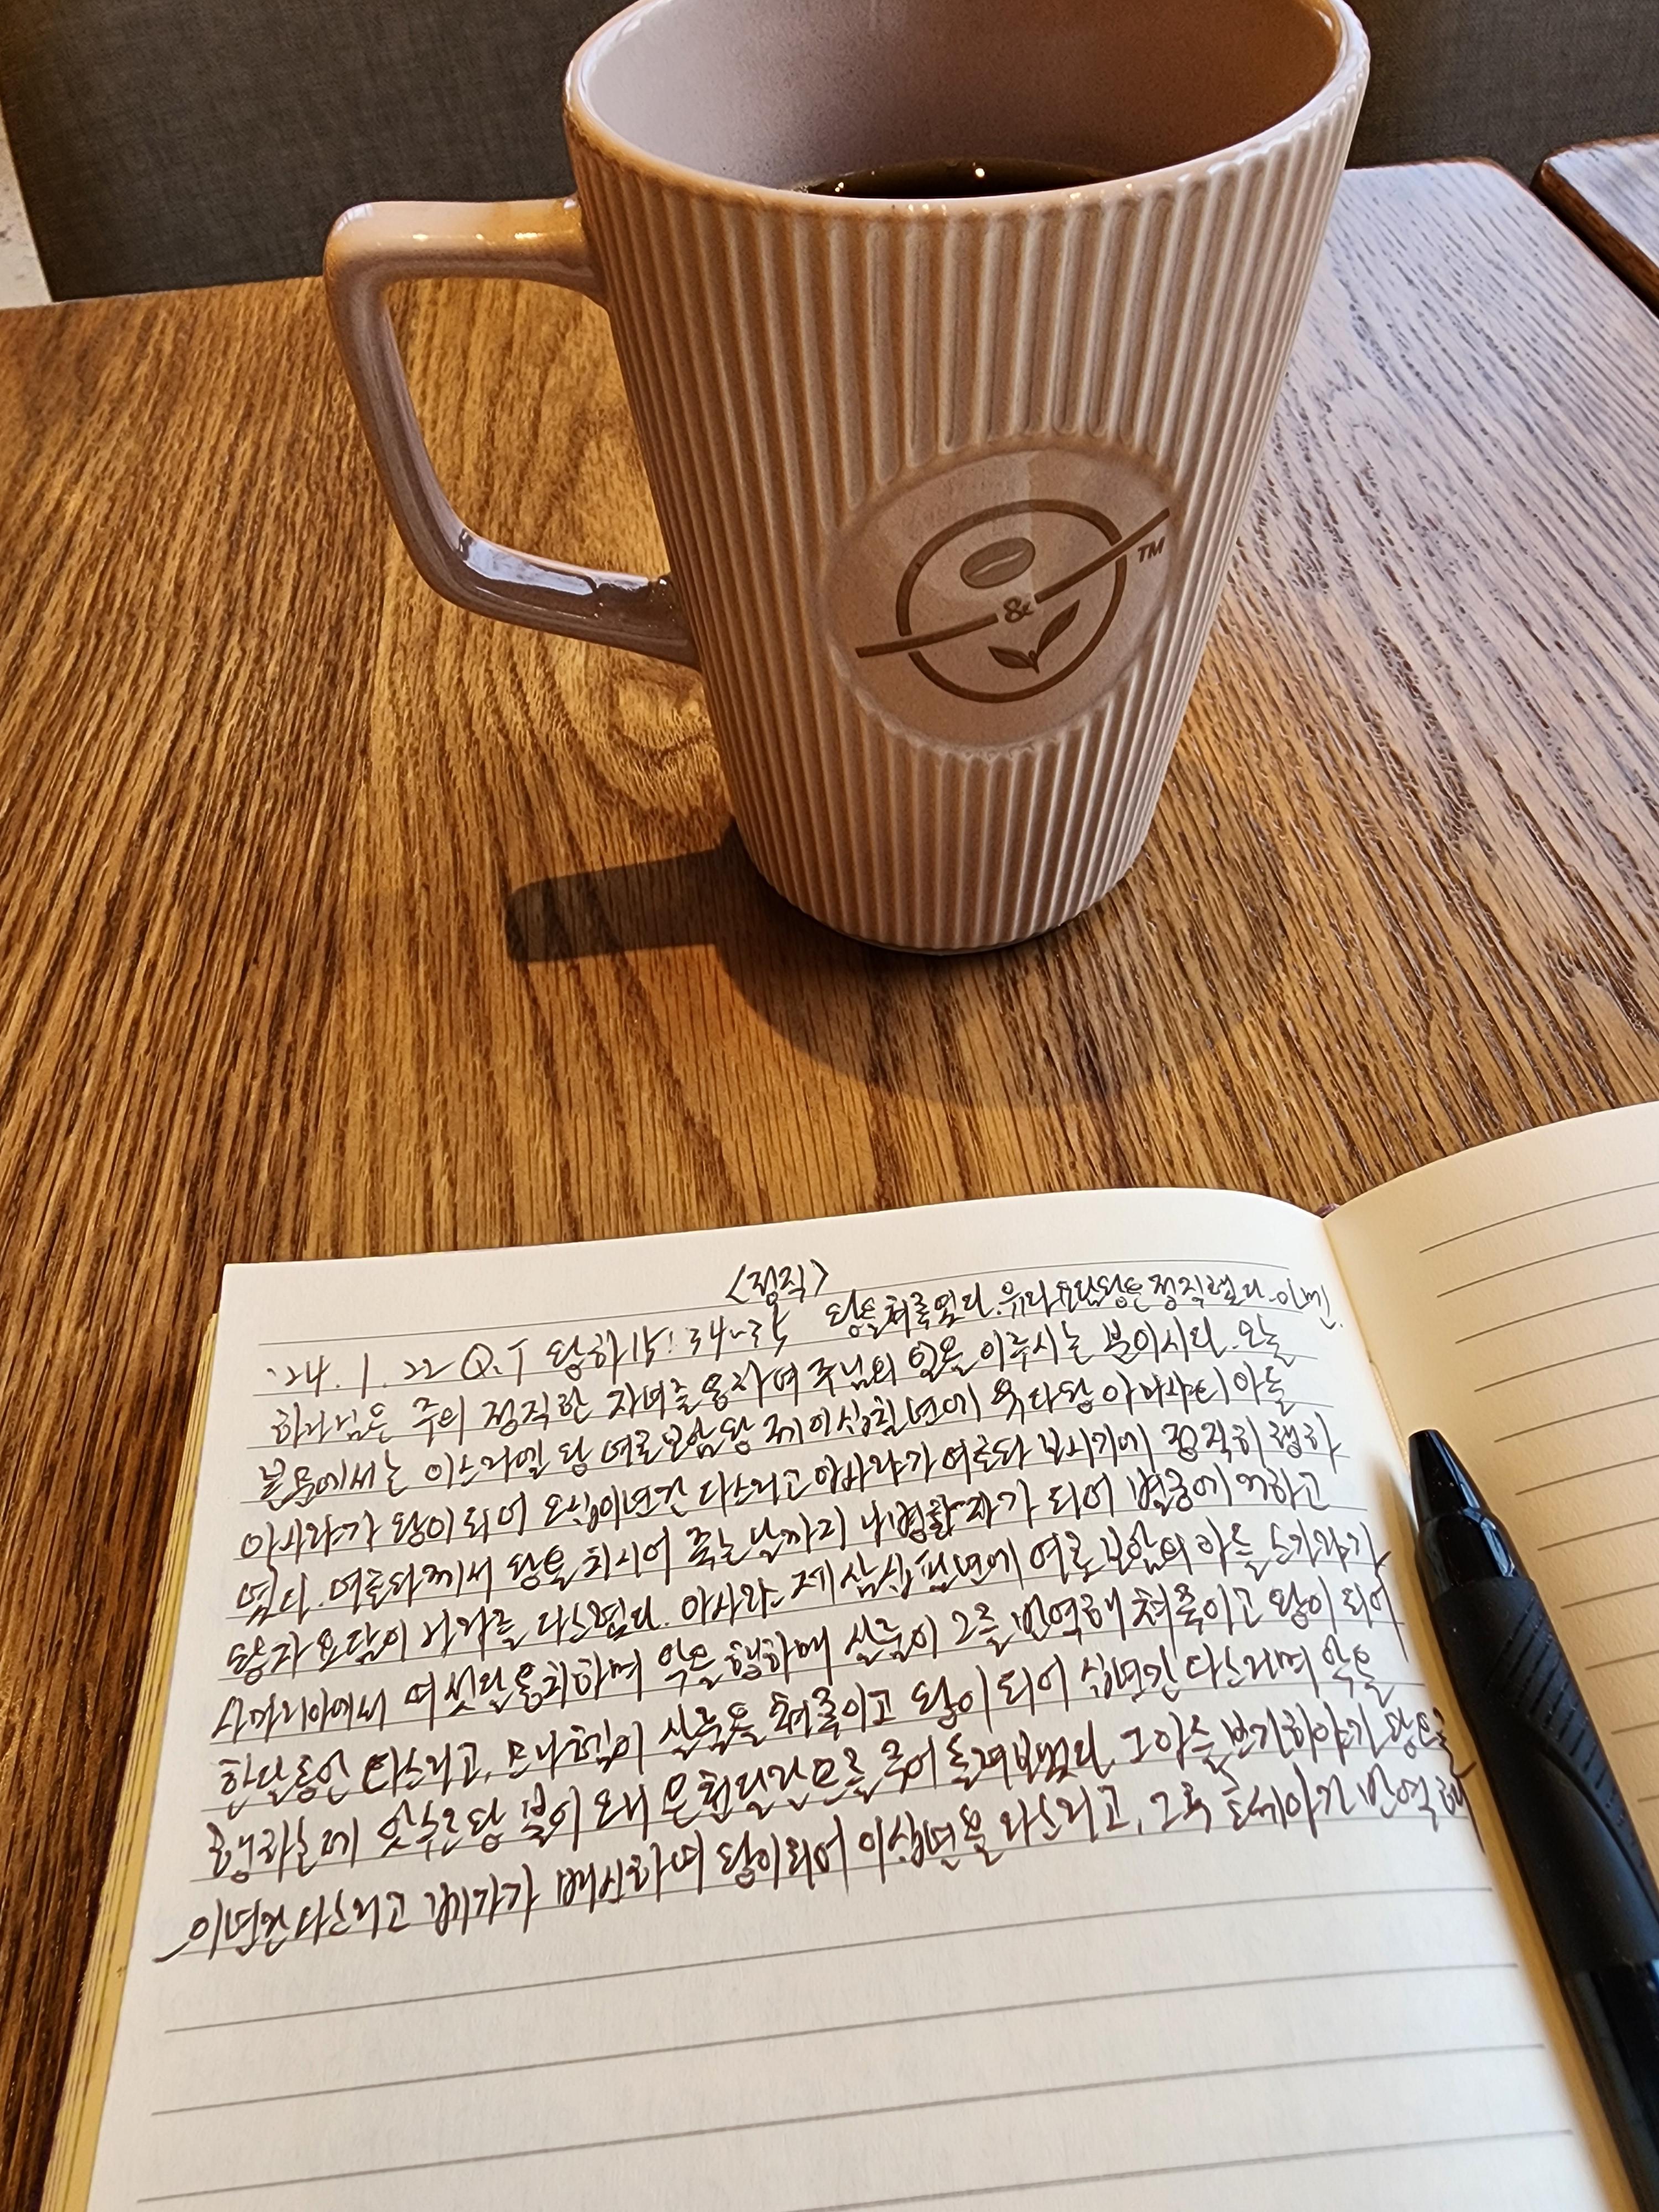 &
TM
<정직>
왕을 쳐죽였다. 유다 요담왕은 정직했다. 아멘.
'24. 1. 22 Q.T 왕하15:34~35
하나님은 주의 정직한 자녀를 통하여 주님의 일을 이루시는 분이시다. 오늘
본문에서는 이스라엘 왕 여로보암왕 제이십칠년에 유다왕 아마샤의 아들
아사랴가 왕이 되어 오십이년간 다스리고 아사랴가 여호와 보시기에 정직히 행하
였다. 여호와께서 왕을 치시어 죽는 날까지 나병환자가 되어 별궁에 거하고
왕자 요담이 나라를 다스렸다. 아사랴 제삼십팔년에 여로보암의 아들 스가랴가
사마리아에서 여섯달을 통치하며 악을 행하매 살룸이 그를 반역해 쳐죽이고 왕이 되어
한달동안 다스리고, 므나헴이 살룸을 쳐죽이고 왕이 되어 십년간 다스리며 악을
행하는데 앗수르왕 불이 오매 은 천달란트를 주어 돌려보냈다. 그 아들 브가히야가 왕으로
이년간 다스리고 베가가 배신하여 왕이 되어 이십년을 다스리고, 그후 호세아가 반역해